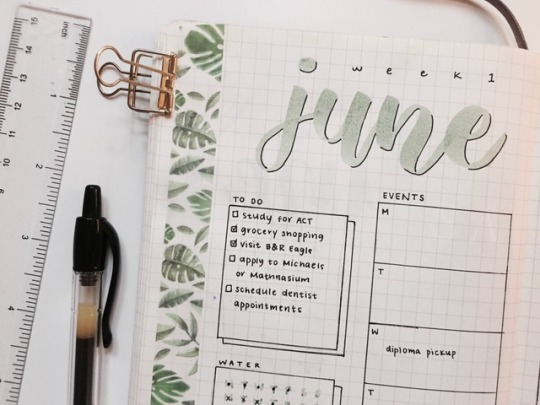 week 1
june
TO DO
study for ACT
grocery shopping
visit B&R Eagle
apply to Michaels
or Mathnasium
schedule dentist
appointments
WATER
EVENTS
M
T
W
diploma pickup
T
inch
1
2
3
4
15
13
12
11
10
9
8
7
6